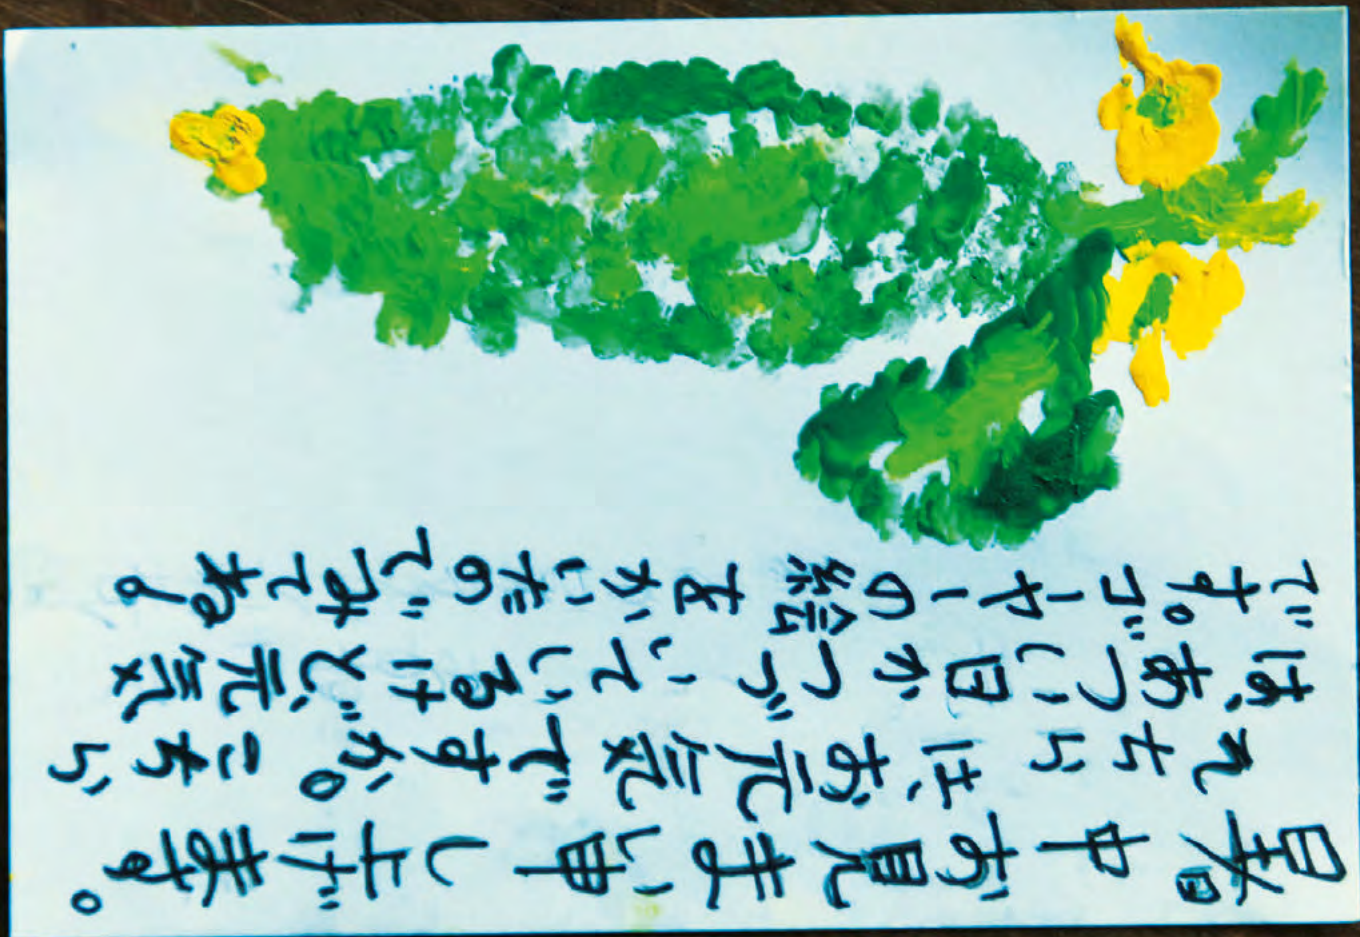 暑中お見まい申し上げます。
そちらは、お元気ですか。こちら
は、あつい日がつづいているけど、元気
です。ゴーヤーの絵をかいたのでみてね。